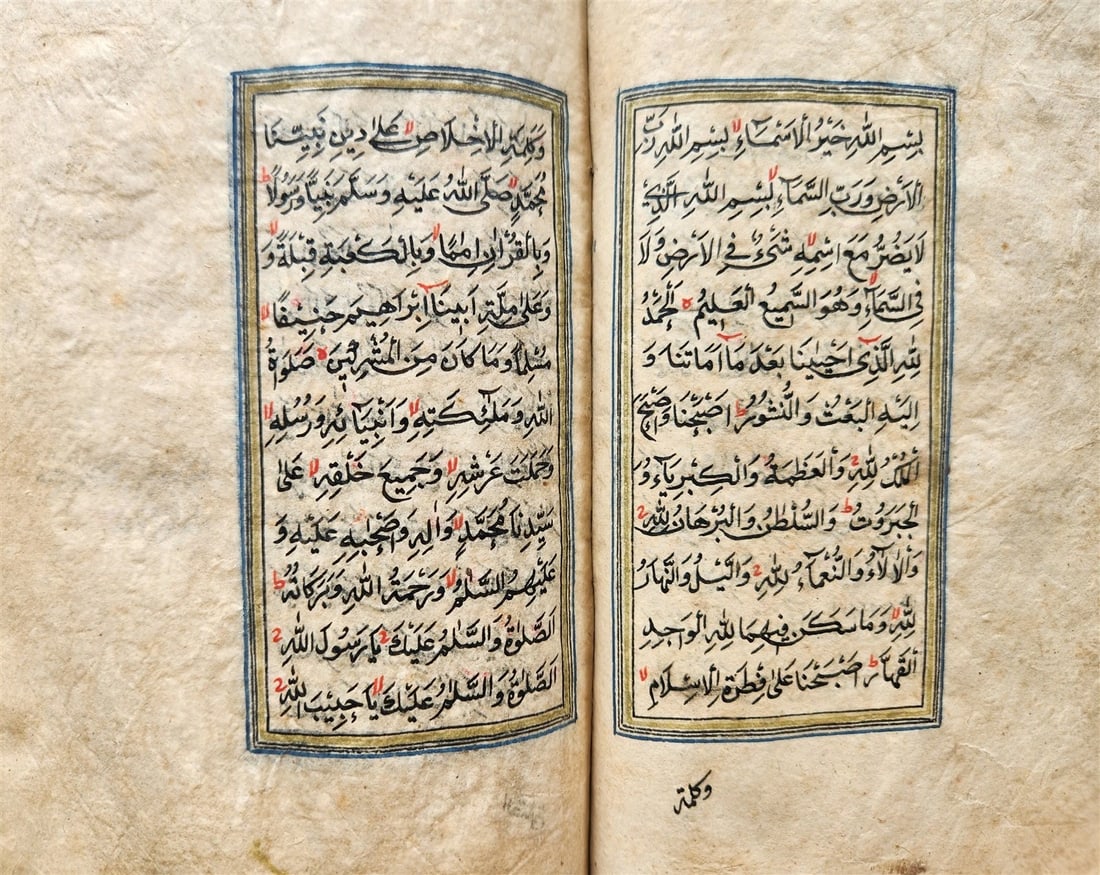 بِسْمِ اللهِ خَيْرُ الْاَسْمَآءِ بِسْمِ اللهِ رَبِّ
الْاَرْضِ وَرَبِّ السَّمَآءِ بِسْمِ اللهِ الَّذِي
لَا يَضُرُّ مَعَ اسْمِهِ شَئٌ فِي الْاَرْضِ وَلَا
فِي السَّمَآءِ وَهُوَ السَّمِيعُ الْعَلِيمُ اَلْحَمْدُ
لِلهِ الَّذِي اَحْيٰينَا بَعْدَ مَآ اَمَاتَنَا وَ
اِلَيْهِ الْبَعْثُ وَالنُّشُورُ اَصْبَحْنَا وَاَصْبَحَ
الْمُلْكُ لِلهِ وَالْعَظَمَةُ وَالْكِبْرِيَآءُ وَ
الْجَبَرُوتُ وَالسُّلْطٰنُ وَالْبُرْهَانُ لِلهِ
وَالْاٰلَآءُ وَالنُّعَمَآءُ لِلهِ وَالَّيْلُ وَالنَّهَارُ
لِلهِ وَمَا سَكَنَ فِيهِمَا لِلهِ الْوَاحِدِ
الْقَهَّارِ اَصْبَحْنَا عَلٰى فِطْرَةِ الْاِسْلَامِ
وكلمة
وَكَلِمَةِ الْاِخْلَاصِ عَلٰى دِينِ نَبِيِّنَا
مُحَمَّدٍ صَلَّى اللهُ عَلَيْهِ وَسَلَّمَ نَبِيًّا وَرَسُولًا
وَبِالْقُرْاٰنِ اِمَامًا وَبِالْكَعْبَةِ قِبْلَةً وَ
وَعَلٰى مِلَّةِ اَبِينَآ اِبْرَاهِيمَ حَنِيفًا
مُسْلِمًا وَمَا كَانَ مِنَ الْمُشْرِكِينَ صَلَوَاةُ
اللهِ وَمَلٰٓئِكَتِهِ وَاَنْبِيَآئِهِ وَرُسُلِهِ
وَحَمَلَتِ عَرْشِهِ وَجَمِيعِ خَلْقِهِ عَلٰى
سَيِّدِنَا مُحَمَّدٍ وَاٰلِهِ وَاَصْحٰبِهِ عَلَيْهِ وَ
عَلَيْهِمُ السَّلٰمُ وَرَحْمَةُ اللهِ وَبَرَكَاتُهُ
اَلصَّلٰوةُ وَالسَّلٰمُ عَلَيْكَ يَا رَسُولَ اللهِ
اَلصَّلٰوةُ وَالسَّلٰمُ عَلَيْكَ يَا حَبِيْبَ اللهِ